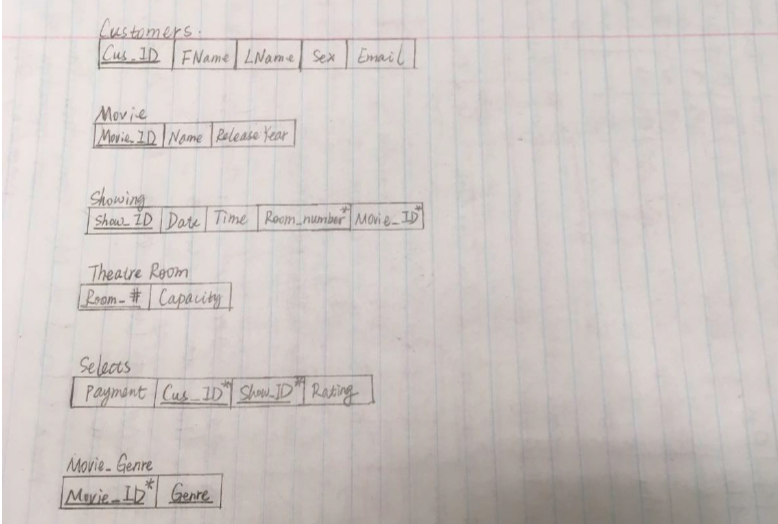 Customers.
Cus_ID FName LName Sex Email
Movie
Movie_ID Name Release Year
Showing
Show_ID Date Time Room_number* Movie_ID*
Theatre Room
Room_# Capacity
Selects
Payment Cus_ID* Show_ID* Rating
Movie_Genre
Movie_ID* Genre